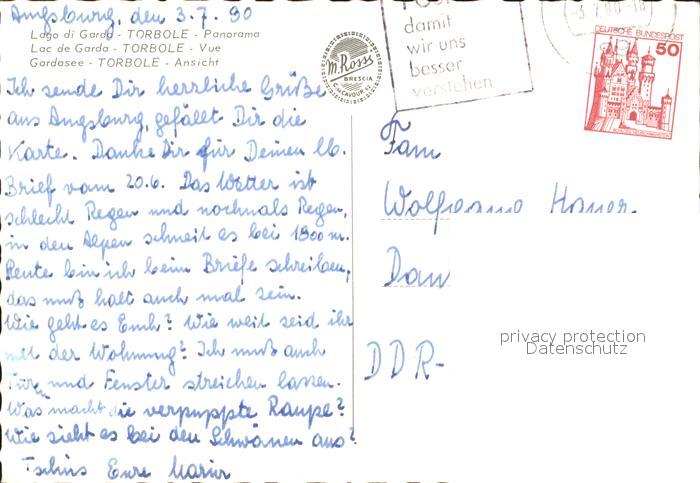 Augsburg, den 3.7.80
Lago di Garda - TORBOLE - Panorama
Lac de Garda - TORBOLE - Vue
Gardasee - TORBOLE - Ansicht
Ich sende Dir herrliche Grüße
aus Augsburg, gefällt Dir die
Karte. Danke Dir für Deinen lb.
Brief vom 20.6. Das Wetter ist
schlecht Regen und nochmals Regen,
in den Alpen schneit es bei 1800 m.
Heute bin ich beim Briefe schreiben,
das muß halt auch mal sein.
Wie geht es Euch? Wie weit seid ihr
mit der Wohnung? Ich muß auch
Tür und Fenster streichen lassen.
Was macht die verpuppte Raupe?
Wie sieht es bei den Schwänen aus?
Tschüs Eure
M. Ross
BRESCIA
damit
wir uns
besser
verstehen
-3.7.80-18
DEUTSCHE BUNDESPOST
50
Fam
Wolfgang
DDR-
privacy protection
Datenschutz